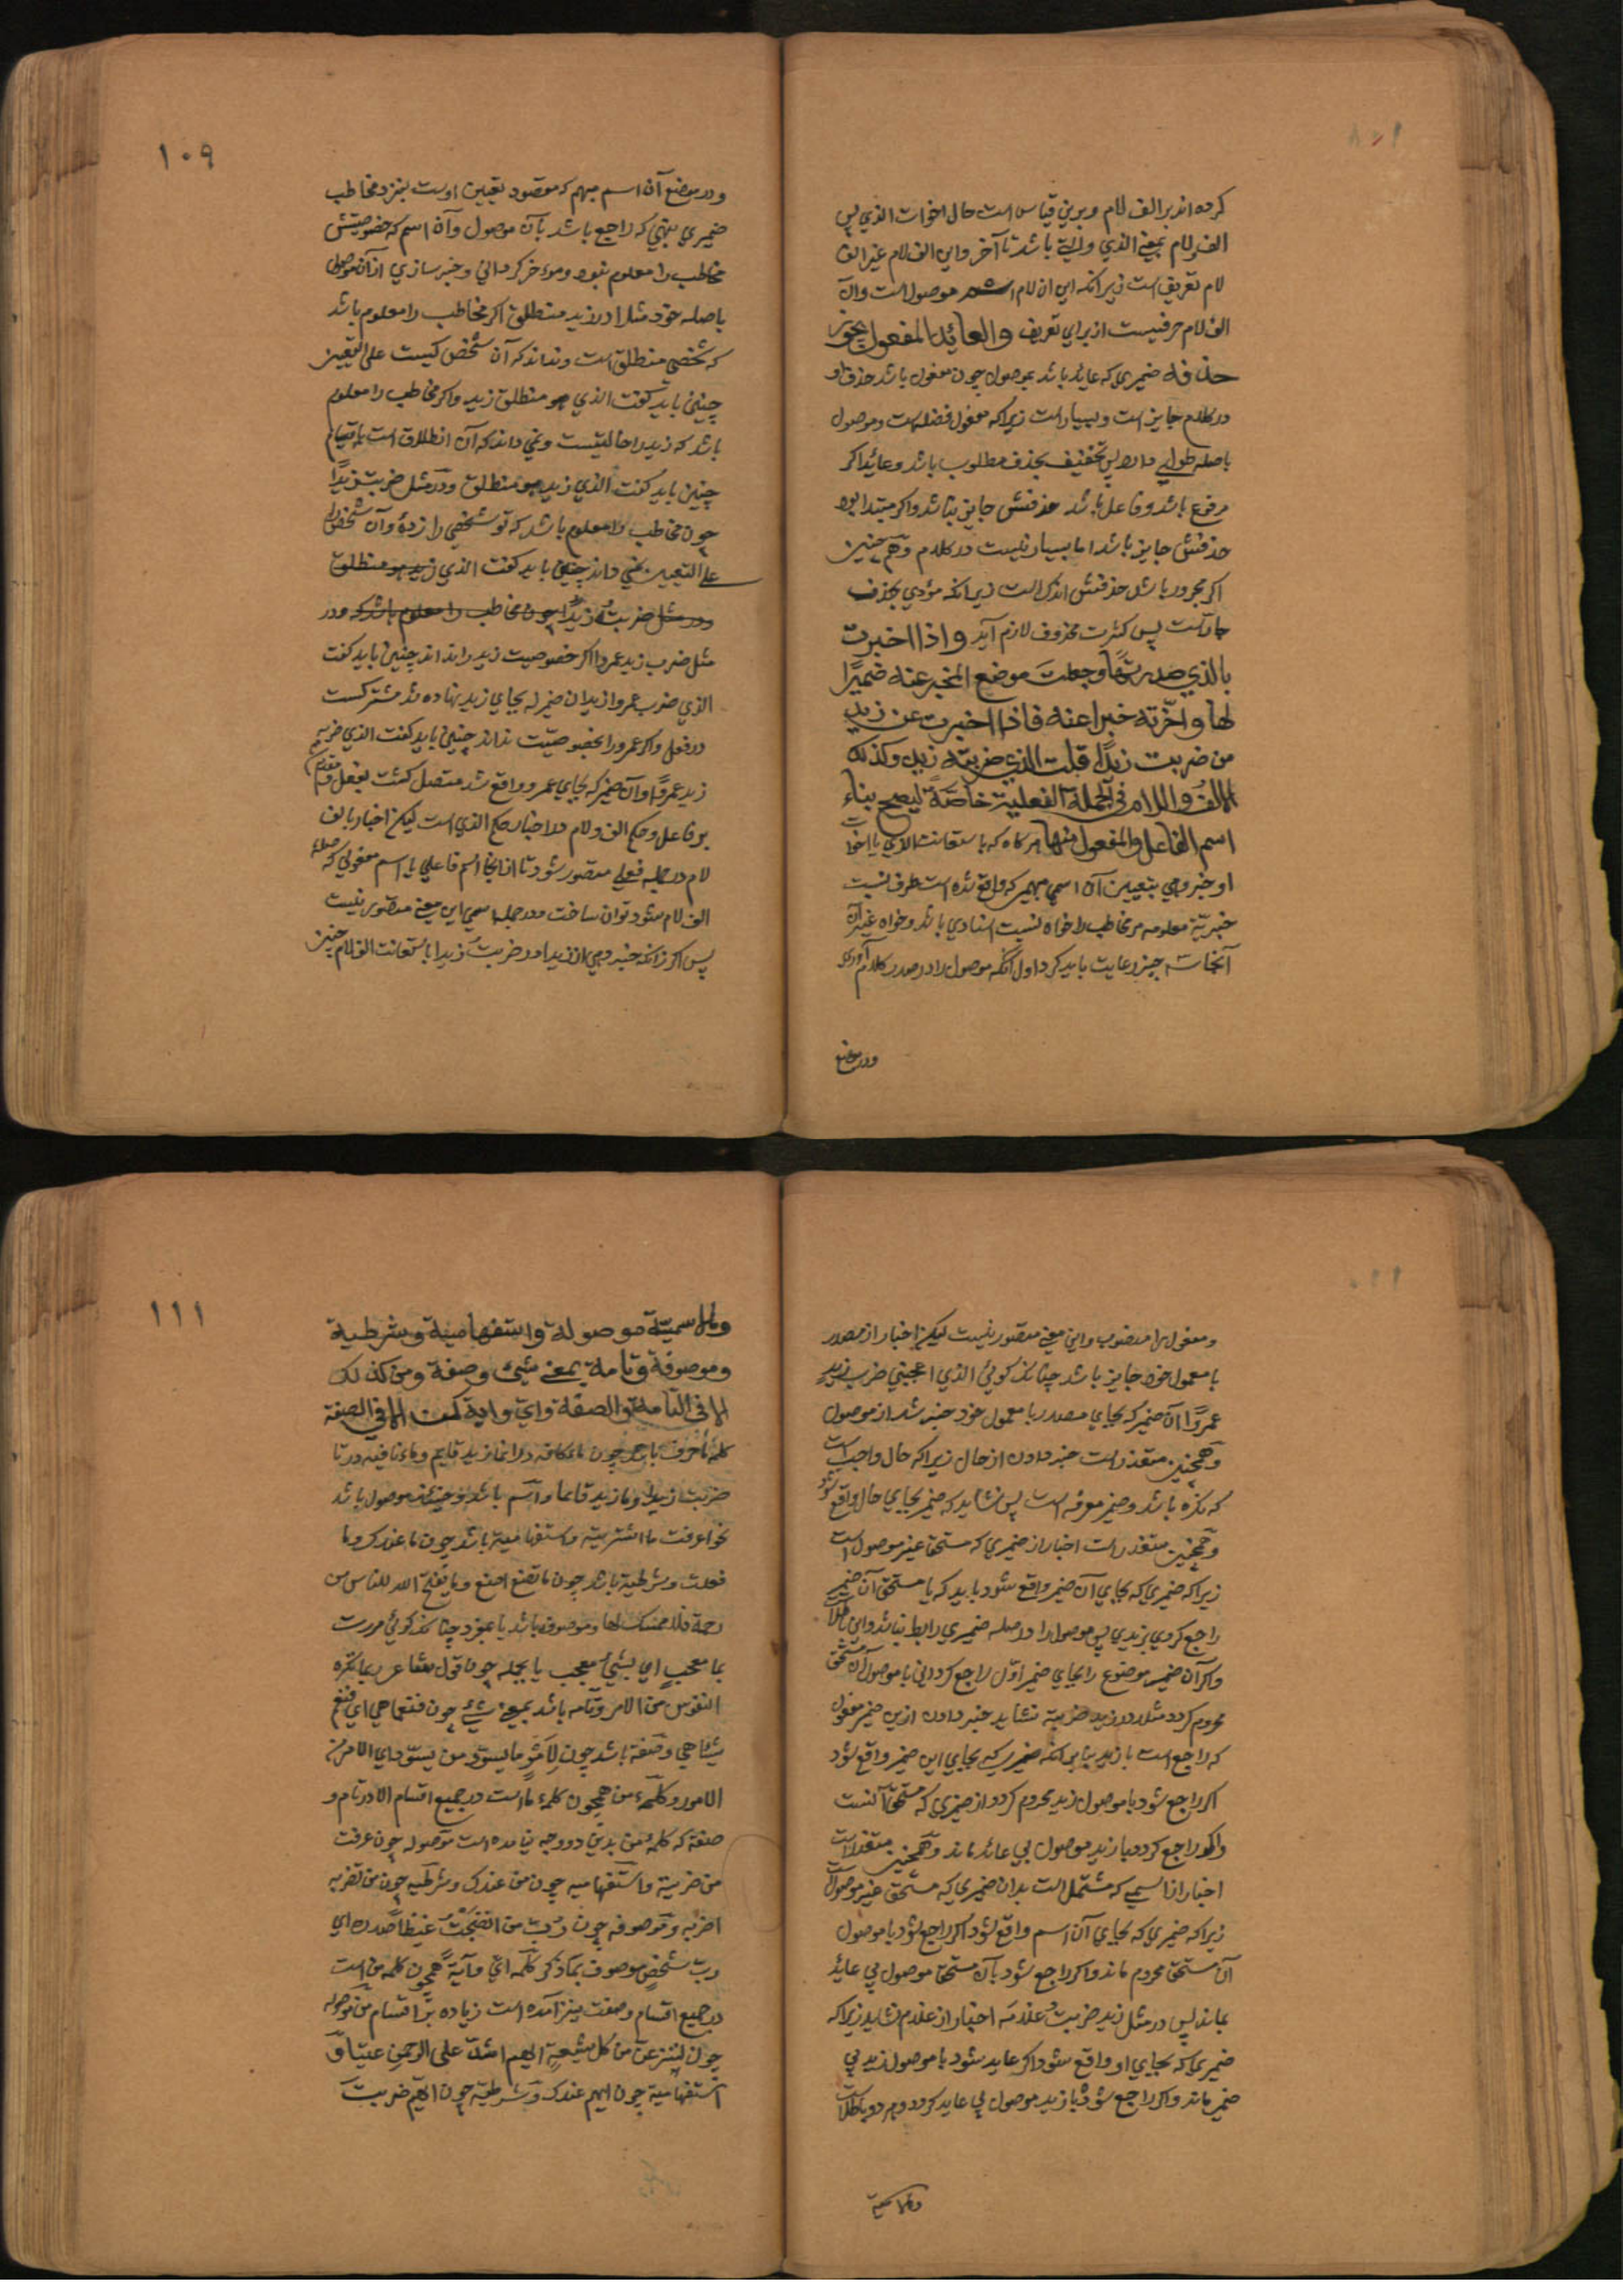 ١٠٨
كرده اند بر الف لام و برین قیاس است حال اخوات الذي پس
الف لام بمعنی الذي والتي باشد تا آخر و این الف لام غیر الف
لام تعریف است زیرا که این الف لام اسم موصول است و آن
الف لام حرفیست از برای تعریف والعائد المفعول یجوز
حذفه ضمیری که عاید باشد بموصول چون مفعول باشد حذف او
در کلام جایز است و بسیار است زیرا که مفعول فضله است و موصول
با صله طولی دارد پس تخفیف بحذف مطلوب باشد و عاید اگر
مرفوع باشد و فاعل باشد حذفش جایز نباشد و اگر مبتدا بود
حذفش جایز باشد اما بسیار نیست در کلام و همچنین
اگر مجرور باشد حذفش اندك است زیرا که مؤدي بحذف
جار است پس كثرت محذوف لازم آید واذا اخبرت
بالذي صدرتها وجعلت موضع المخبر عنه ضمیرًا
لها واخرته خبرا عنه فاذا اخبرت عن زید
من ضربت زیدًا قلت الذي ضربته زید وكذلك
الالف واللام في الجملة الفعلیة خاصّةً لیصح بناء
اسم الفاعل والمفعول منها هر گاه که باستعانت الذي یا اخوات
او خبر دهي بتعیین آن اسمی مبهم که واقع شده است طرف نسبت
خبریّة معلومه مر مخاطب را خواه نسبت اسنادي باشد و خواه غیر آن
آنجا سه چیز رعایت باید کرد اول آنکه موصول را در صدر کلام آوردي
ودر موضع
١٠٩
ودر موضع آن اسم مبهم که مقصود تعیین اوست بنزد مخاطب
ضمیري بنهي که راجع باشد بآن موصول و آن اسم که خصوصیتش
مخاطب را معلوم نبود و مؤخر گرداني و خبر سازي از آن موصول
با صله خود مثلا در زید منطلق اگر مخاطب را معلوم باشد
که شخصی منطلق است و نداند که آن شخص کیست علی التعیین
چنین باید گفت الذي هو منطلق زید و اگر مخاطب را معلوم
باشد که زید را حالیتست و نمي داند که آن انطلاق است یا قیام
چنین باید گفت الذي زید هو منطلق و در مثل ضربت زیدًا
چون مخاطب را معلوم باشد که تو شخصي را زدهٔ و آن شخص را
علی التعیین نمي داند چنین باید گفت الذي زید هو منطلق
ودر مثل ضربت زیدًا چون مخاطب را معلوم باشد که ودر
مثل ضرب زید عمروا اگر خصوصیت زید را نداند چنین باید گفت
الذي ضرب عمروا زید آن ضمیر که بجاي زید نهاده شد مستتر است
در فعل و اگر عمرو را بخصوصیّت نداند چنین باید گفت الذي ضربه
زید عمرٌو و آن ضمیر که بجاي عمرو واقع شد متصل گشت بفعل و مقدم
بر فاعل و حکم الف و لام در اخبار حکم الذي است لیکن اخبار بالف
لام در جمله فعلی متصور شود تا از آنجا اسم فاعلي یا اسم مفعولي که صله
الف لام شود توان ساخت و در جمله اسمي این معنی متصور نیست
پس اگر زانکه خبر دهي از زید در ضربت زیدا باستعانت الف لام چنین
١١٠
ومفعول را منصوب و این معنی متصور نیست لیکن اخبار از مصدر
با معمول خود جایز باشد چنانکه گوئي الذي اعجبني ضرب زیدٍ
عمروًا آن ضمیر که بجاي مصدر با معمول خود خبر شد از موصول
و همچنین متعذر است خبر دادن از حال زیرا که حال واجب است
که نکره باشد و ضمیر معرفه است پس نشاید که ضمیر بجاي حال واقع شود
و همچنین متعذر است اخبار از ضمیري که مستحق غیر موصول است
زیرا که ضمیري که بجاي آن ضمیر واقع شود باید که با مستحق آن ضمیر
راجع گردي بزیدي پس موصول را در صله ضمیري رابط نباشد و این باطل است
و اگر آن ضمیر موضوع را بجاي ضمیر اوّل راجع گرداني با موصول آن مستحق
محروم گردد مثلا در زید ضربته نشاید خبر دادن ازین ضمیر مفعول
که راجع است با زید بنابر آنکه ضمیري که بجاي این ضمیر واقع شود
اگر راجع شود با موصول زید محروم گردد از ضمیري که مستحق آنست
و اگر راجع گردد با زید موصول بي عائد ماند و همچنین متعذر است
اخبار از اسمي که مشتمل است بدان ضمیري که مستحق غیر موصول است
زیرا که ضمیري که بجاي آن اسم واقع شود اگر راجع شود با موصول
آن مستحق محروم ماند و اگر راجع شود بآن مستحق موصول بي عاید
بماند پس در مثل زید ضربت غلامه اخبار از غلام نشاید زیرا که
ضمیري که بجاي او واقع شود اگر عاید شود با موصول زید بي
ضمیر ماند و اگر راجع شود با زید موصول بي عاید گردد و هر دو باطل است
وما الاسمیة
١١١
وما الاسمیّة موصولة واستفهامیة وشرطیة
وموصوفة وتامة بمعنی شيء وصفة ومن كذلك
الا في التامة والصفة وايّ وایّة كمن الا في الصفة
کلمهٔ ما حرف باشد چون ماء کافه در انما زید قایم و ماء نافیه در ما
ضربت زیدا و ما زید قائما و اسم باشد و حینئذ موصول باشد
نحو اعرفت ما اشتریته و استفهامیة باشد چون ما عندك وما
فعلت و شرطیة باشد چون ما تصنع اصنع وما یفتح الله للناس من
رحمة فلا ممسك لها و موصوفه باشد یا بمفرد چنانکه گوئي مررت
بما معجبٍ اي بشيءٍ معجب یا بجمله چون قول شاعر ربما تكره
النفوس من الامر و تامه باشد بمعنی شيء چون فنعما هي اي فنعم
شیئا هي و صفة باشد چون لِاَمرٍ ما یسوّد من یسوّد اي لامر من
الامور و کلمهء من همچون کلمهء ما است در جمیع اقسام الا در تام و
صفة که کلمهٔ من بدین دو وجه نیامده است موصوله چون عرفت
من ضربته و استفهامیه چون من عندك و شرطیه چون من تضربه
اضربه و موصوفه چون رُبَّ من انضجتُ غیظًا صدره اي
رب شخصٍ موصوف بما ذكر کلمه ايّ و ایّة همچون کلمه من است
در جمیع اقسام و صفت نیز آمده است زیاده بر اقسام من موصوله
چون لننزعن من كل شیعةٍ ایهم اشدّ علی الرحمن عتیّا و
استفهامیة چون ایهم عندك و شرطیة چون ایّهم ضربت